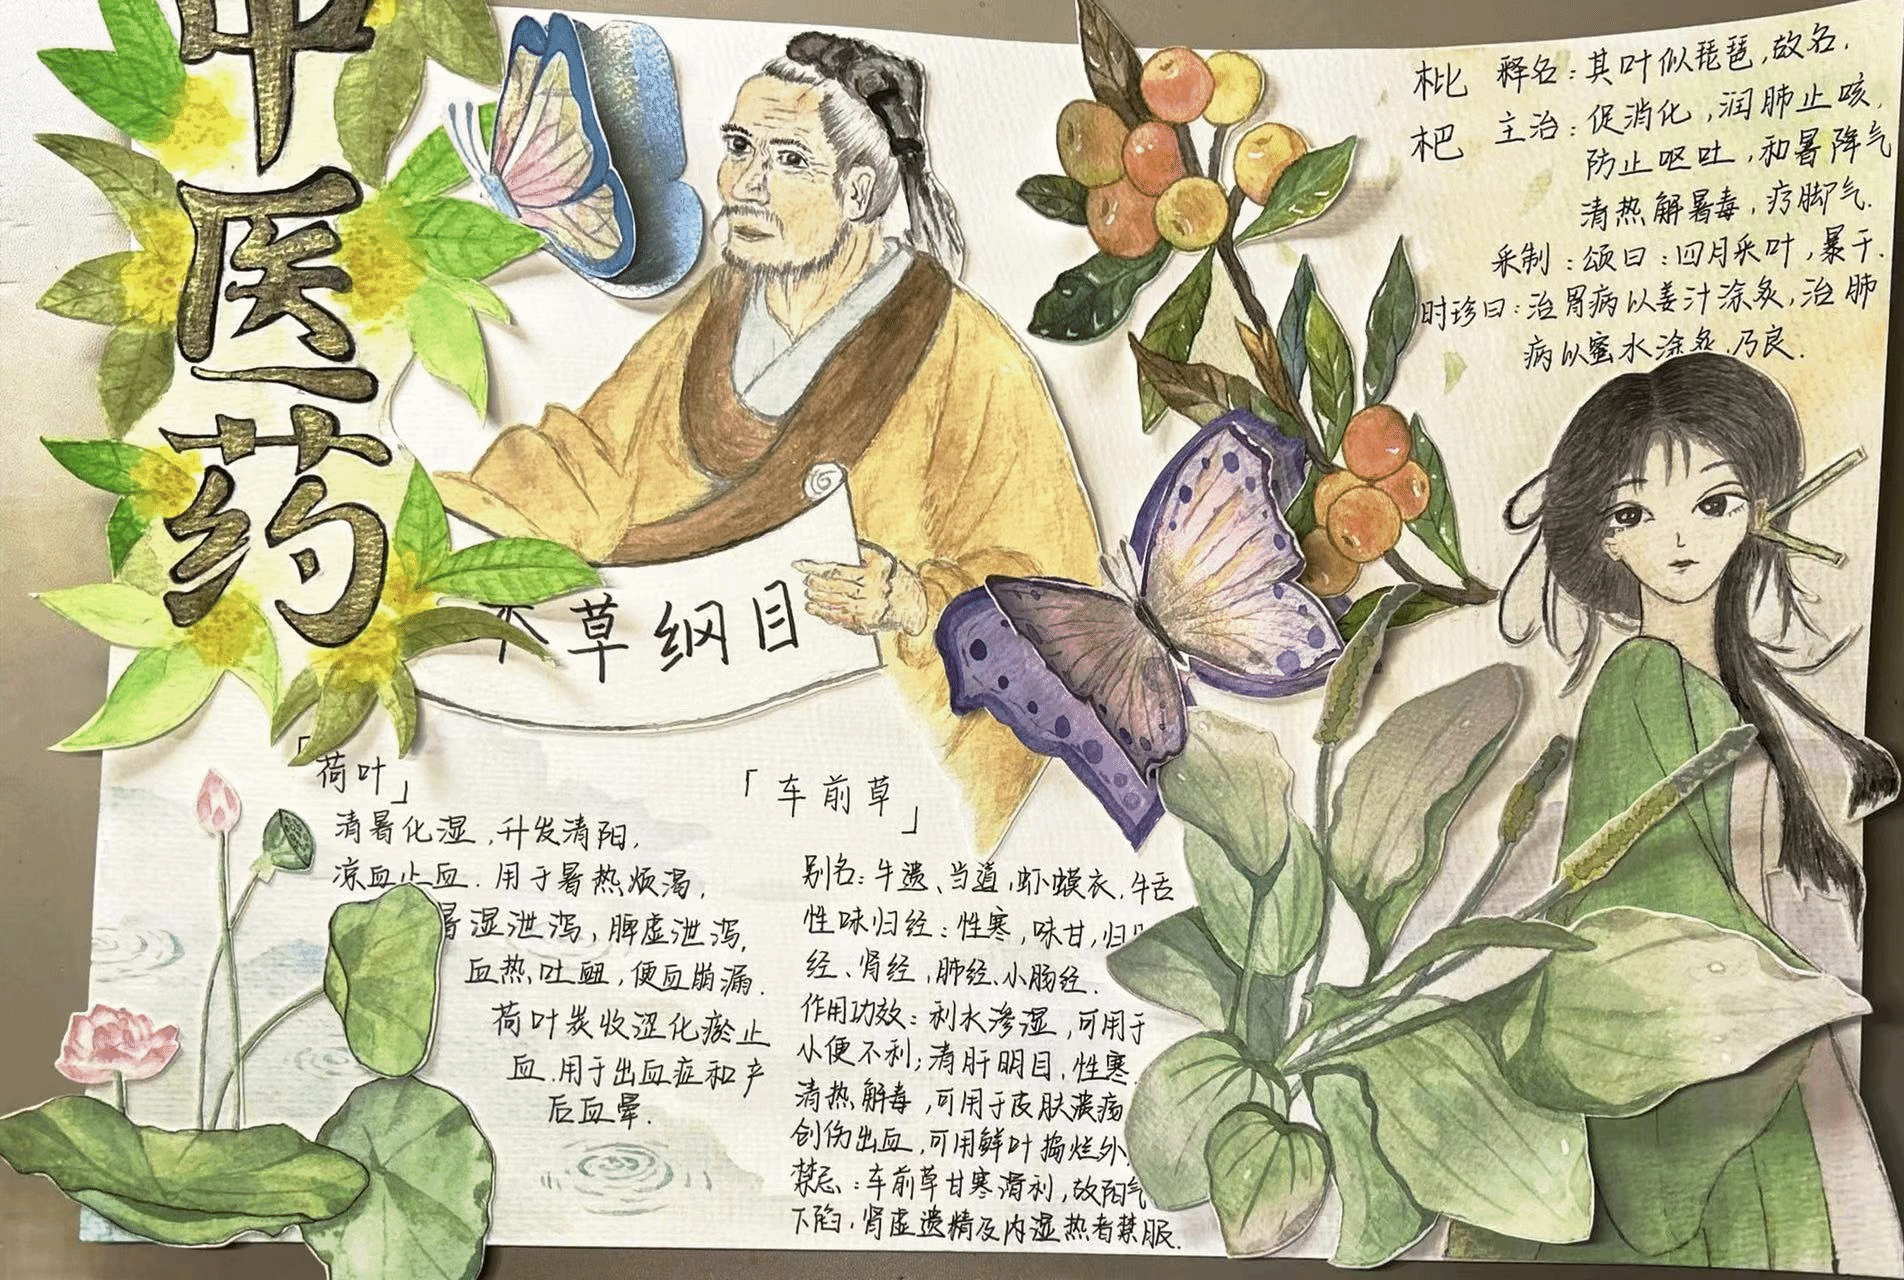 中医药
本草纲目
枇杷
释名：其叶似琵琶，故名.
主治：促消化，润肺止咳，
防止呕吐，和暑降气
清热解暑毒，疗脚气.
采制：颂曰：四月采叶，暴干.
时珍曰：治胃病以姜汁涂炙，治肺
病以蜜水涂炙.乃良.
「荷叶」
清暑化湿，升发清阳，
凉血止血.用于暑热烦渴，
暑湿泄泻，脾虚泄泻，
血热吐衄，便血崩漏.
荷叶炭收涩化瘀止
血.用于出血症和产
后血晕.
「车前草」
别名：牛遗、当道，虾蟆衣，牛舌
性味归经：性寒，味甘，归
经、肾经，肺经、小肠经.
作用功效：利水渗湿，可用于
小便不利；清肝明目.性寒.
清热解毒，可用于皮肤溃疡
创伤出血，可用鲜叶捣烂外
禁忌：车前草甘寒滑利，故阳气
下陷，肾虚遗精及内湿热者禁服.